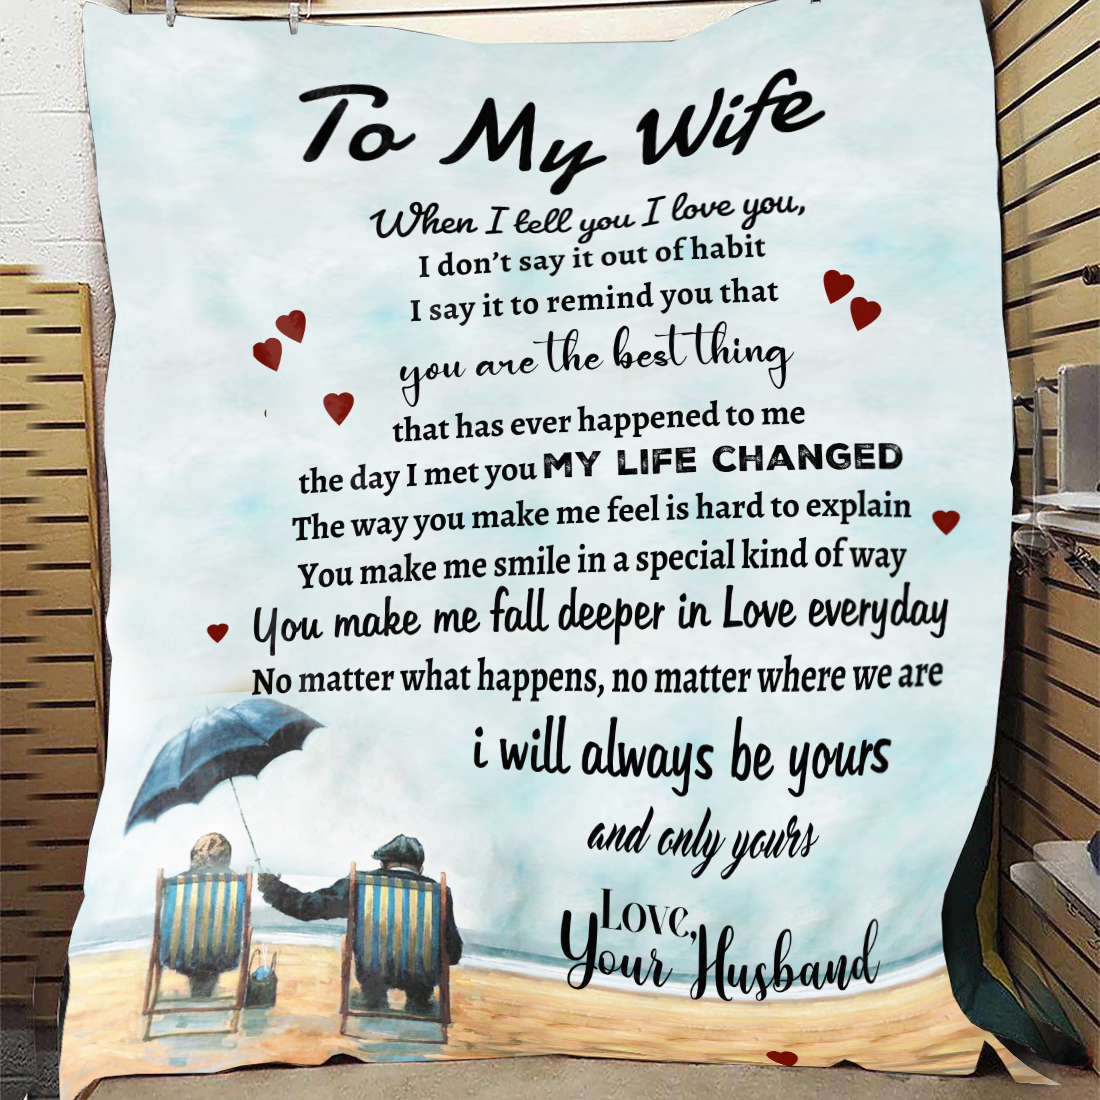 To My Wife
When I tell you I love you,
I don't say it out of habit
I say it to remind you that
you are the best thing
that has ever happened to me
the day I met you MY LIFE CHANGED
The way you make me feel is hard to explain
You make me smile in a special kind of way
You make me fall deeper in Love everyday
No matter what happens, no matter where we are
i will always be yours
and only yours
Love,
Your Husband